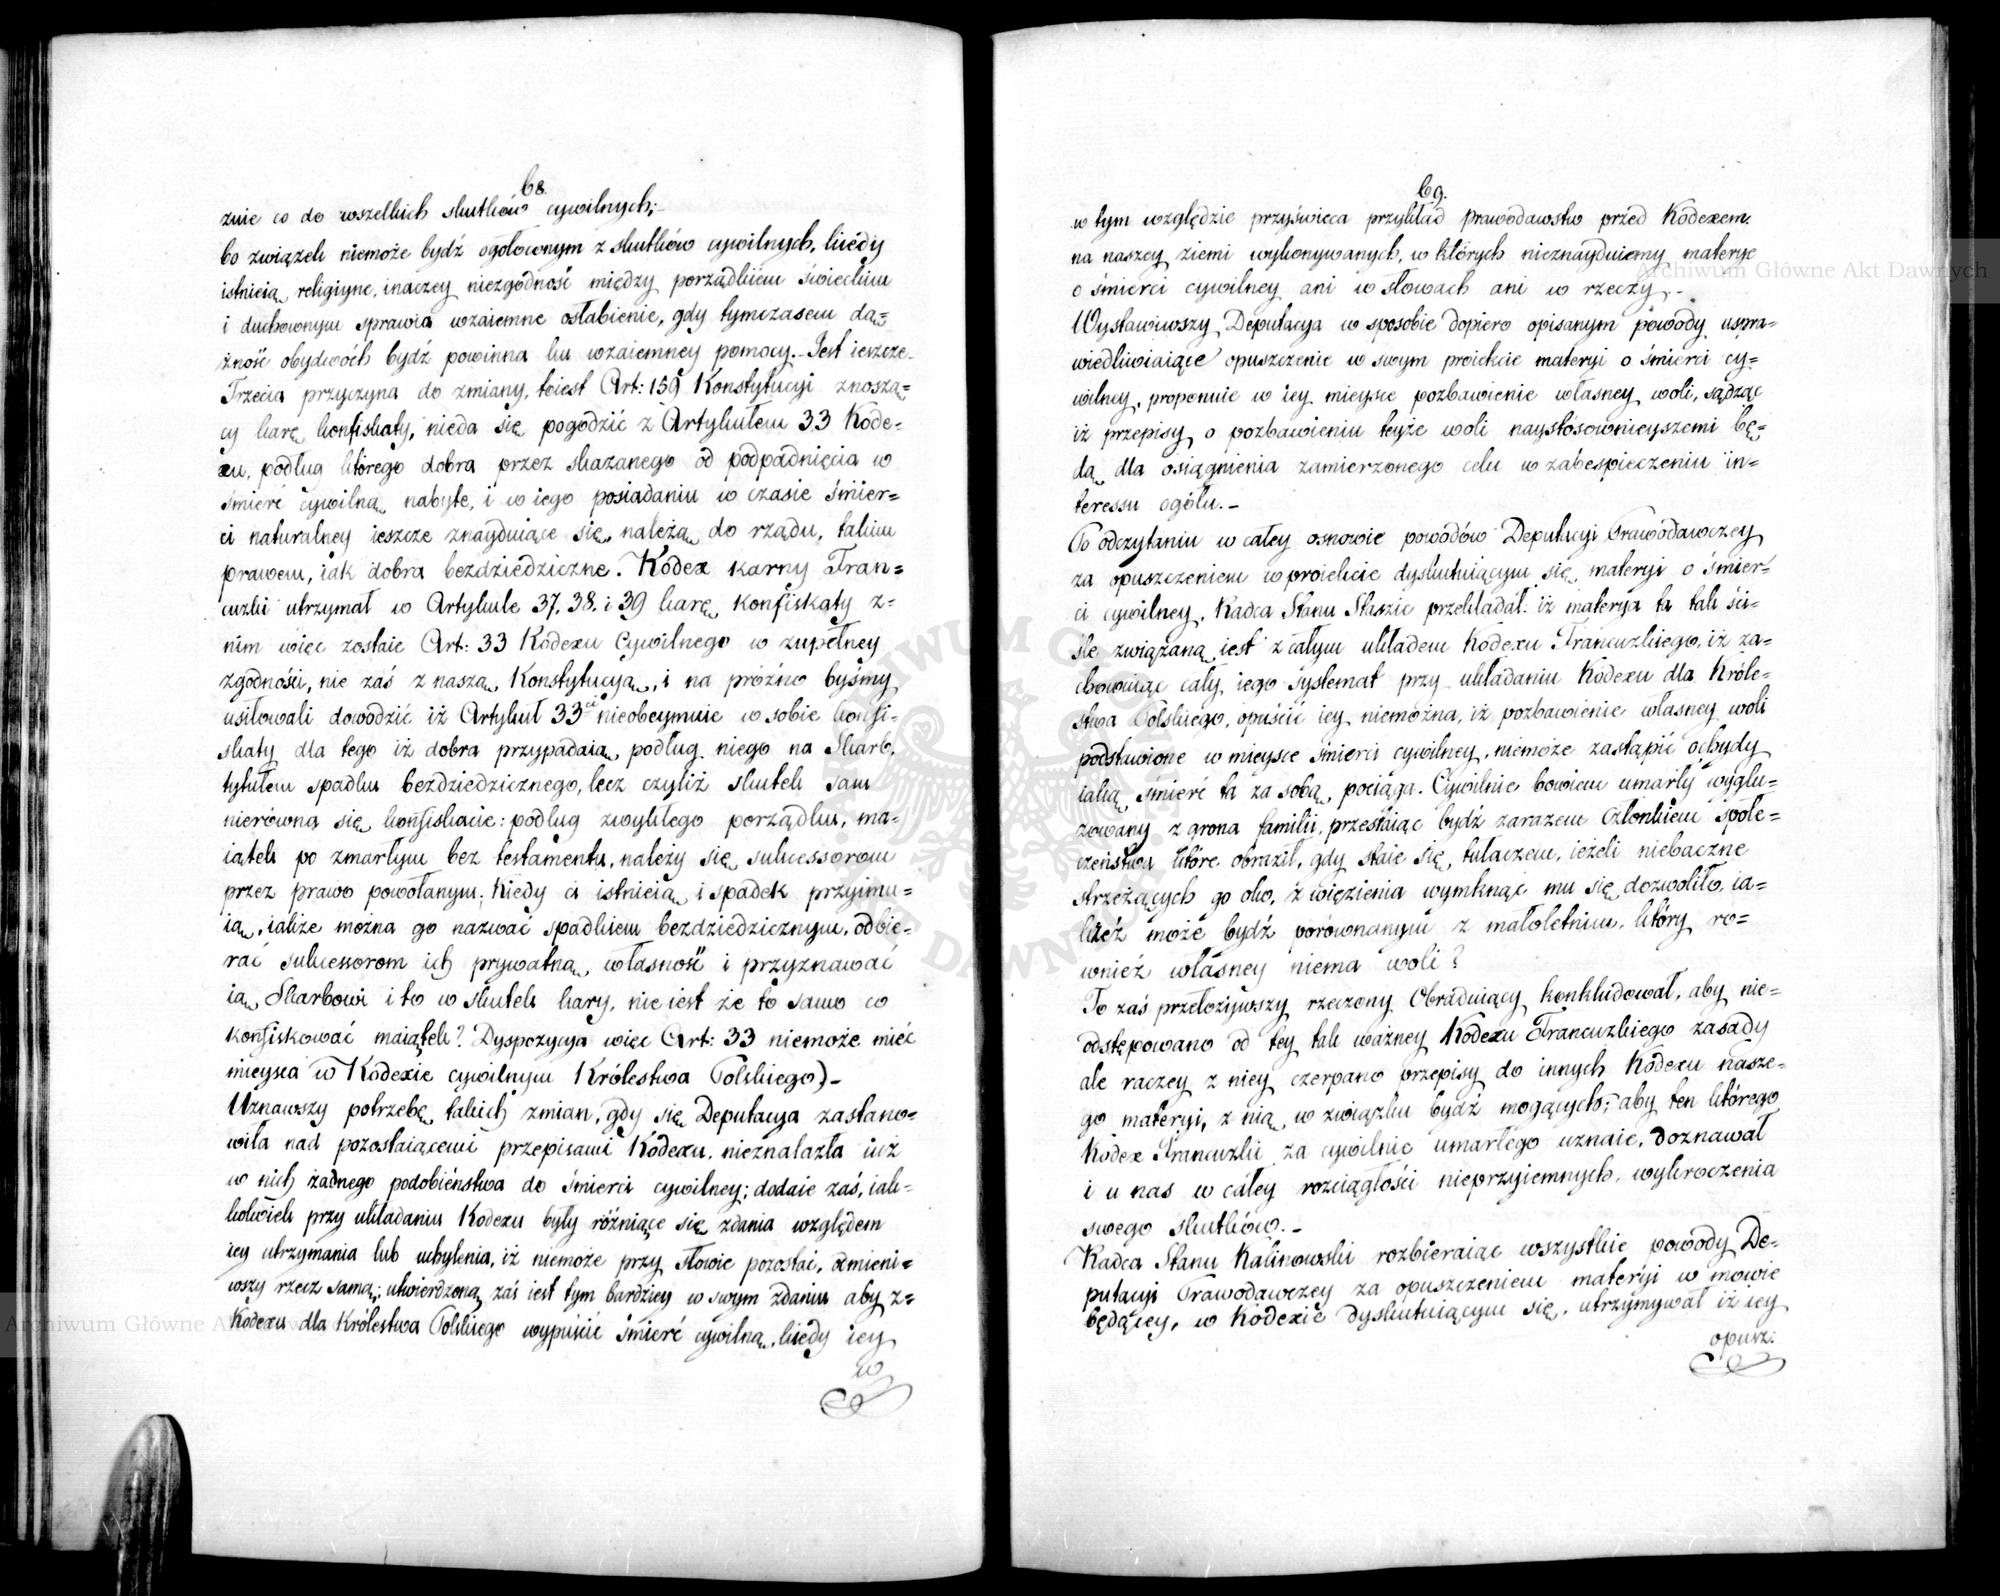 68.
znie co do wszelkich skutków cywilnych;
bo związek niemoże bydź ogołoconym z skutków cywilnych, kiedy
istnieią religiyne, inaczey niezgodność między porządkiem świeckim
i duchownym sprawia wzaiemne osłabienie, gdy tymczasem dą=
żność obydwóch bydź powinna ku wzaiemney pomocy.– Jest ieszcze
Trzecia przyczyna do zmiany, toiest Art: 159 Konstytucyi znoszą=
cy karę konfiskaty, nieda się pogodzić z Artykułem 33 Kode=
xu, podług którego dobra przez skazanego od podpadnięcia w
śmierć cywilną nabyte, i w iego posiadaniu w czasie śmier=
ci naturalney ieszcze znayduiące się, należą do rządu, takim
prawem, iak dobra bezdziedziczne. Kodex karny Fran=
cuzki utrzymał w Artykule 37. 38. i 39 karę konfiskaty z=
nim więc zostaie Art: 33 Kodexu Cywilnego w zupełney
zgodności, nie zaś z naszą Konstytucyą, i na próżno byśmy
usiłowali dowodzić iż Artykuł 33ci nieobeymuie w sobie konfi=
skaty dla tego iż dobra przypadaią podług niego na Skarb,
tytułem spadku bezdziedzicznego, lecz czyliż skutek sam
nierówna się konfiskacie: podług zwykłego porządku, ma=
iątek po zmarłym bez testamentu, należy się sukcessorom
przez prawo powołanym; Kiedy ci istnieią i spadek przyimu=
ią, iakże można go nazwać spadkiem bezdziedzicznym, odbie=
rać sukcessorom ich prywatną własność i przyznawać
ią Skarbowi i to w skutek kary, nie iest że to samo co
konfiskować maiątek? Dyspozycya więc Art: 33 niemoże mieć
mieysca w Kodexie cywilnym Królestwa Polskiego)–
Uznawszy potrzebę takich zmian, gdy się Deputacya zastano=
wiła nad pozostaiącemi przepisami Kodexu, nieznalazła iuż
w nich żadnego podobieństwa do śmierci cywilney; dodaie zaś, iak=
kolwiek przy układaniu Kodexu były różniące się zdania względem
iey utrzymania lub uchylenia, iż niemoże przy słowie pozostać, zmieni=
wszy rzecz samą; utwierdzoną zaś iest tym bardziey w swym zdaniu aby z=
Kodexu dla Królestwa Polskiego wypuścić śmierć cywilną, kiedy iey
w
69.
w tym względzie przyświeca przykład prawodawstw przed Kodexem
na naszey ziemi wykonywanych, w których nieznayduiemy materye
o śmierci cywilney ani w słowach ani w rzeczy.–
Wystawiwszy Deputacya w sposobie dopiero opisanym powody uspra=
wiedliwiaiące opuszczenie w swym proiekcie materyi o śmierci cy=
wilney, proponuie w iey mieysce pozbawienie własney woli, sądząc
iż przepisy o pozbawieniu teyże woli naystosownieyszemi bę=
dą dla osiągnienia zamierzonego celu w zabespieczeniu in=
teressu ogółu.–
Po odczytaniu w całey osnowie powodów Deputacyi Prawodawczey
za opuszczeniem w proiekcie dyskutuiącym się materyi o śmier=
ci cywilney, Radca Stanu Staszic przekładał: iż materya ta tak ści=
śle związaną iest z całym układem Kodexu Francuzkiego, iż za=
chowuiąc cały iego systemat przy układaniu Kodexu dla Króle=
stwa Polskiego, opuścić iey niemożna, iż pozbawienie własney woli
podstawione w mieysce śmierci cywilney, niemoże zastąpić ochydy
iaką śmierć ta za sobą pociąga. Cywilnie bowiem umarły wyglu=
zowany z grona familii, przestaiąc bydź zarazem Członkiem społe=
czeństwa które obraził, gdy staie się tułaczem, ieżeli niebaczne
strzeżących go oko, z więzienia wymknąć mu się dozwoliło, ia=
kież może bydź porównanym z małoletnim, który ró=
wnież własney niema woli?
To zaś przełożywszy rzeczony Obraduiący konkludował, aby nie=
odstępowano od tey tak ważney Kodexu Francuzkiego zasady
ale raczey z niey czerpano przepisy do innych Kodexu nasze=
go materyi, z nią w związku bydź mogących; aby ten którego
Kodex Francuzki za cywilnie umarłego uznaie, doznawał
i u nas w całey rozciągłości nieprzyiemnych, wykroczenia
swego skutków.–
Radca Stanu Kalinowski rozbieraiąc wszystkie powody De=
putacyi Prawodawczey za opuszczeniem materyi w mowie
będącey, w Kodexie dyskutuiącym się, utrzymywał iż iey
opusz:
Archiwum Główne Akt Dawnych